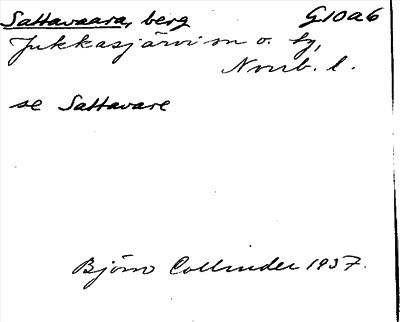 Sattavaara, berg G10a6
Jukkasjärvi sn o. tg,
Norrb. l.
se Sattavare
Björn Collinder 1937.